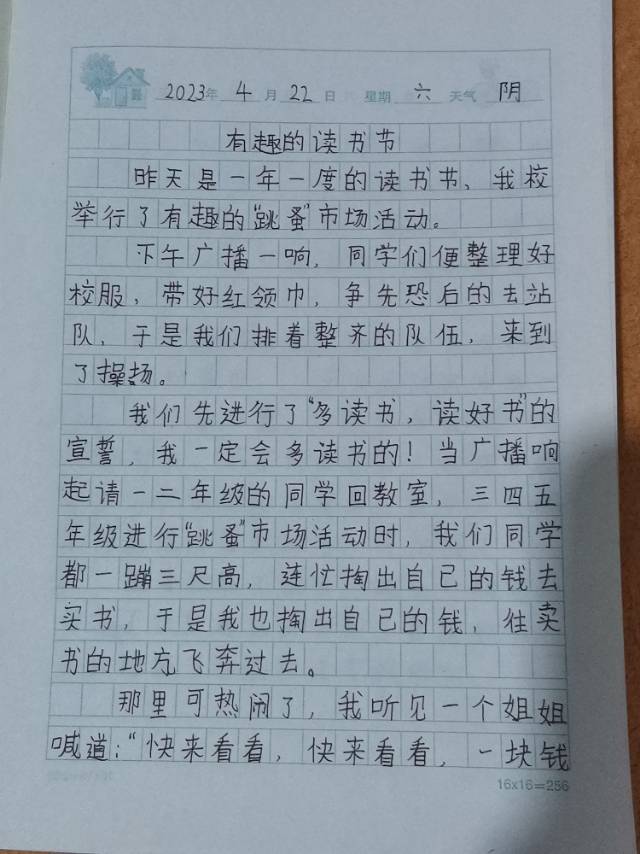 2023年 4 月 22 日 星期 六 天气 阴
有趣的读书节
昨天是一年一度的读书节、我校
举行了有趣的“跳蚤”市场活动。
下午广播一响，同学们便整理好
校服，带好红领巾，争先恐后的去站
队，于是我们排着整齐的队伍，来到
了操场。
我们先进行了“多读书，读好书”的
宣誓，我一定会多读书的！当广播响
起请一二年级的同学回教室，三四五
年级进行“跳蚤”市场活动时，我们同学
都一蹦三尺高，连忙掏出自己的钱去
买书，于是我也掏出自己的钱，往卖
书的地方飞奔过去。
那里可热闹了，我听见一个姐姐
喊道：“快来看看，快来看看，一块钱
16x16=256